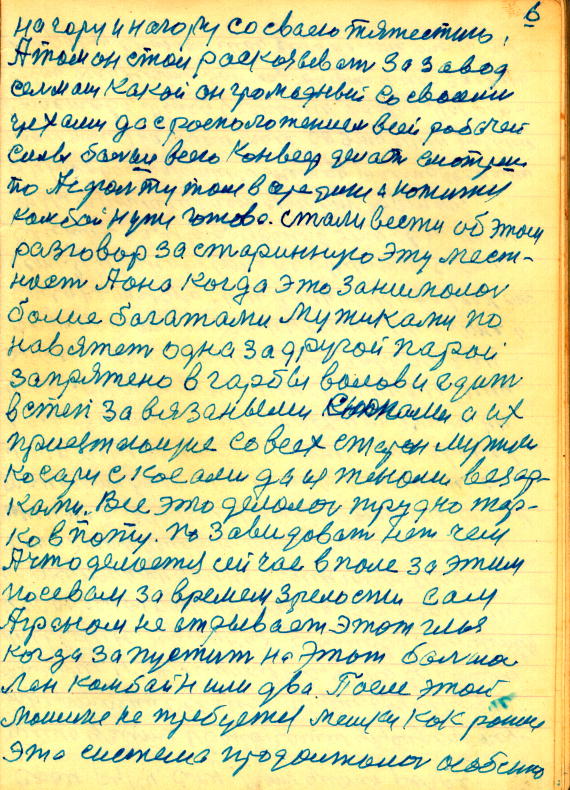 6
на гору и на гору со сваею тяжестию,
А том он стои раскозывать за завод
селмаш какой он громадный со своими
цехами да с росположением всей рабочей
силы больш всего конвеер делает смотриш
то
комбайн уже готово. стали вести об этом
разговор за старинную эту мест-
ност А она когда это занималог
более богатами мужиками по
навятет одна за другой парой
запряжено в гарбы волов и едит
в степ за вязаными а их
со всех старон мужики
косари с косами да их женами вязар-
ками. Все это делолог трудно жар-
ко в поту. по завидоват нет чем
А что делается сейчас в поле за этим
посевам за времем зрелости сам
Аграном не отрывает этот глаз
когда запустит на этот болша
лан комбайн или два После этой
машине не требуется мешки как раньше
эта система продолжалог особено